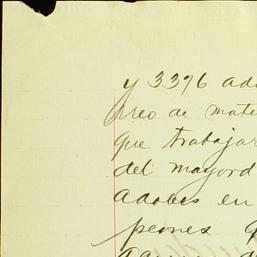 y 3376 ado
rreo de mate
que trabajar
del mayord
adobes en
peones